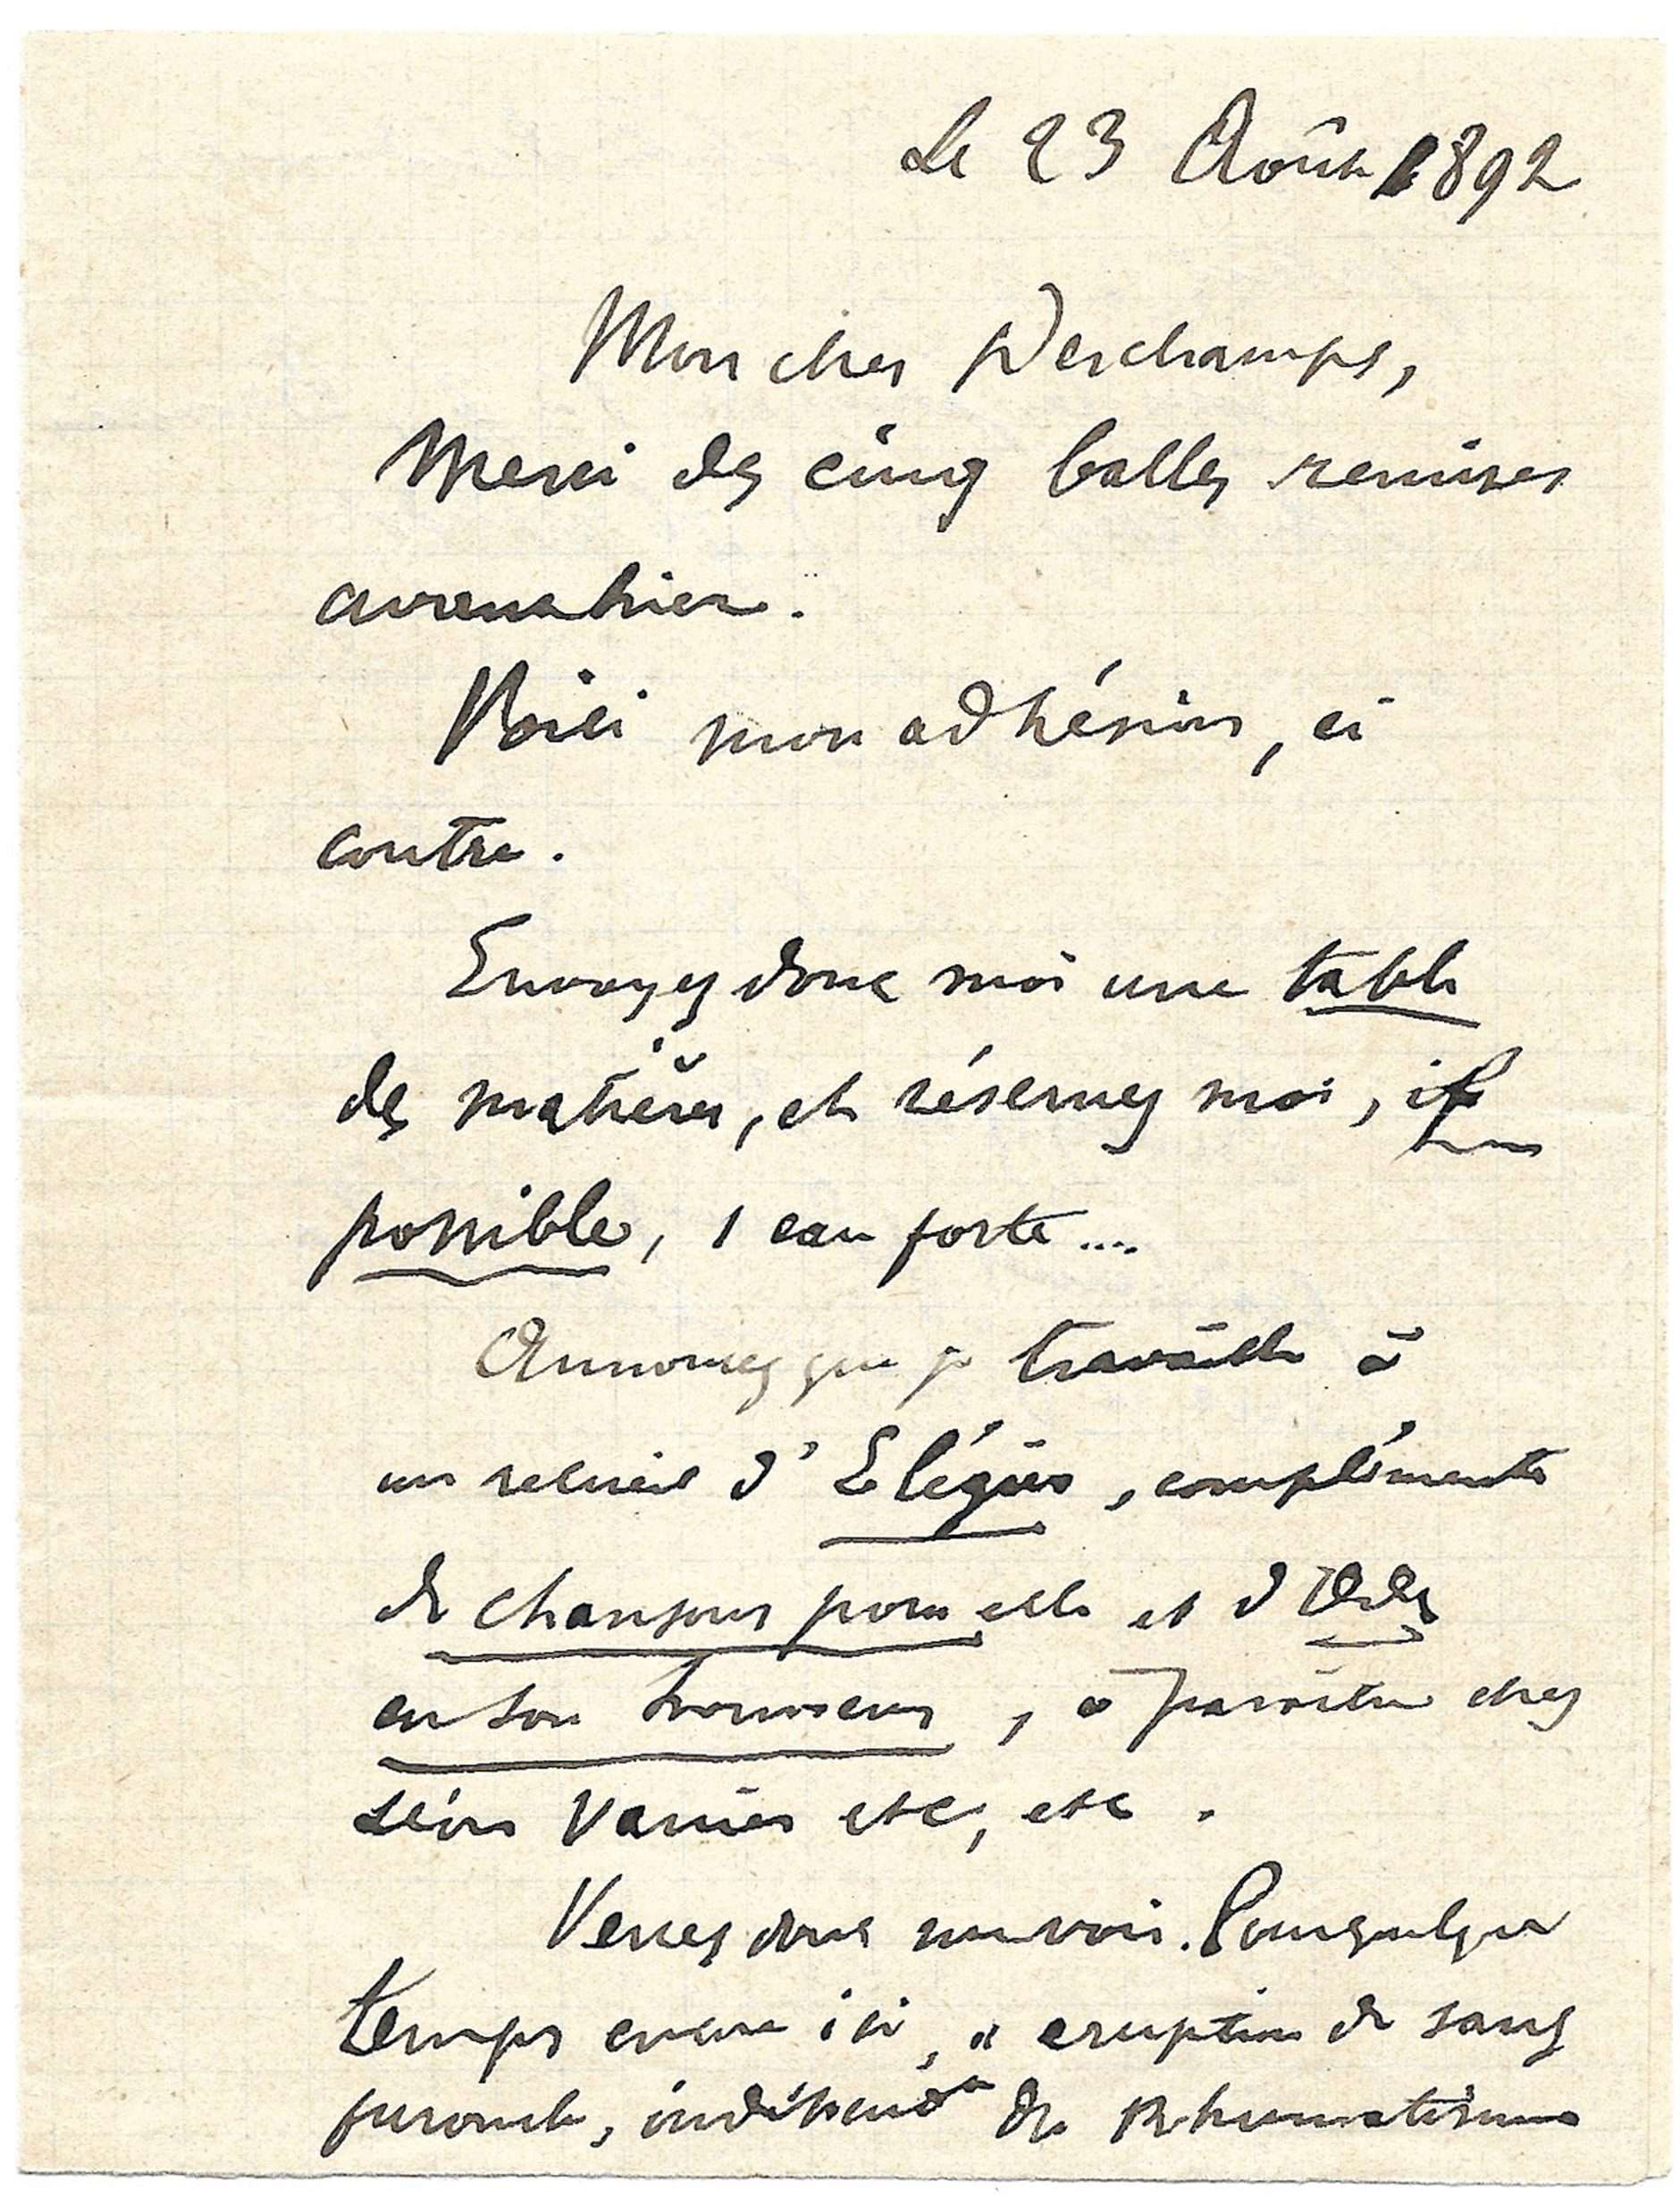 Le 23 Août 1892
Mon cher Deschamps,
Merci des cinq balles remises
avant hier.
Voici mon adhésion, ci
contre.
Envoyez donc moi une table
des matières, et réservez moi, if
possible, 1 eau forte....
Annoncez que je travaille à
un recueil d'Elégies, complément
de chansons pour elle et d'Odes
en son honneur, à paraître chez
Léon Vanier etc, etc.
Venez donc me voir. Pour quelque
temps encore ici, "eruption de sang
furoncle, indépendt de Rhumatisme